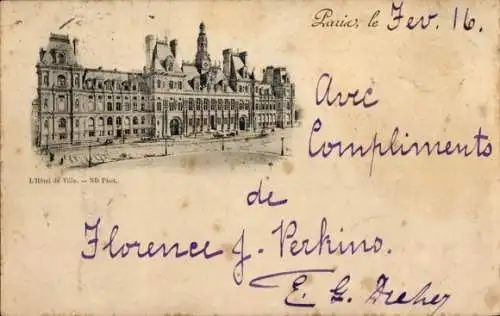 Paris, le Fev. 16.
Avec
Compliments
de
Florence J. Perkins.
E. G.
L'Hôtel de Ville. — ND Phot.